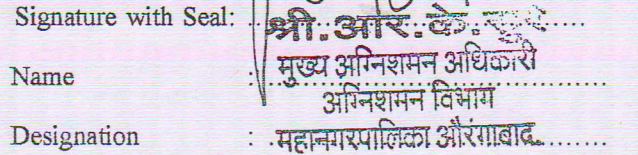 Signature with Seal:
श्री. आर. के.
Name : मुख्य अग्निशमन अधिकारी
अग्निशमन विभाग
Designation : महानगरपालिका औरंगाबाद.